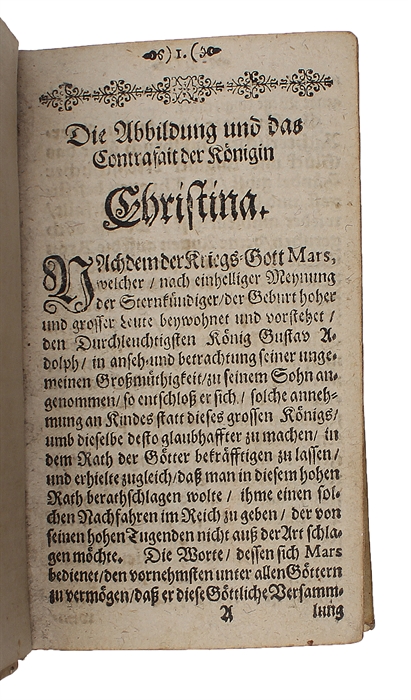 ) 1. (
Die Abbildung und das
Contrafait der Königin
Christina.
NAchdem der Kriegs-Gott Mars,
welcher / nach einhelliger Meynung
der Sternkündiger / der Geburt hoher
und grosser Leute beywohnet und vorstehet /
den Durchleuchtigsten König Gustav A-
dolph / in anseh- und betrachtung seiner unge-
meinen Großmühtigkeit / zu seinem Sohn an-
genommen / so entschloß er sich / solche anneh-
mung an Kindes statt dieses grossen Königs /
umb dieselbe desto glaubhaffter zu machen / in
dem Rath der Götter bekräfftigen zu lassen /
und erhielte zugleich / daß man in diesem hohen
Rath berathschlagen wolte / ihme einen sol-
chen Nachfahren im Reich zu geben / der von
seinen hohen Tugenden nicht auß der Art schla-
gen möchte. Die Worte / dessen sich Mars
bedienet / den vornehmsten unter allen Göttern
zu vermögen / daß er diese Göttliche Versamm-
A lung